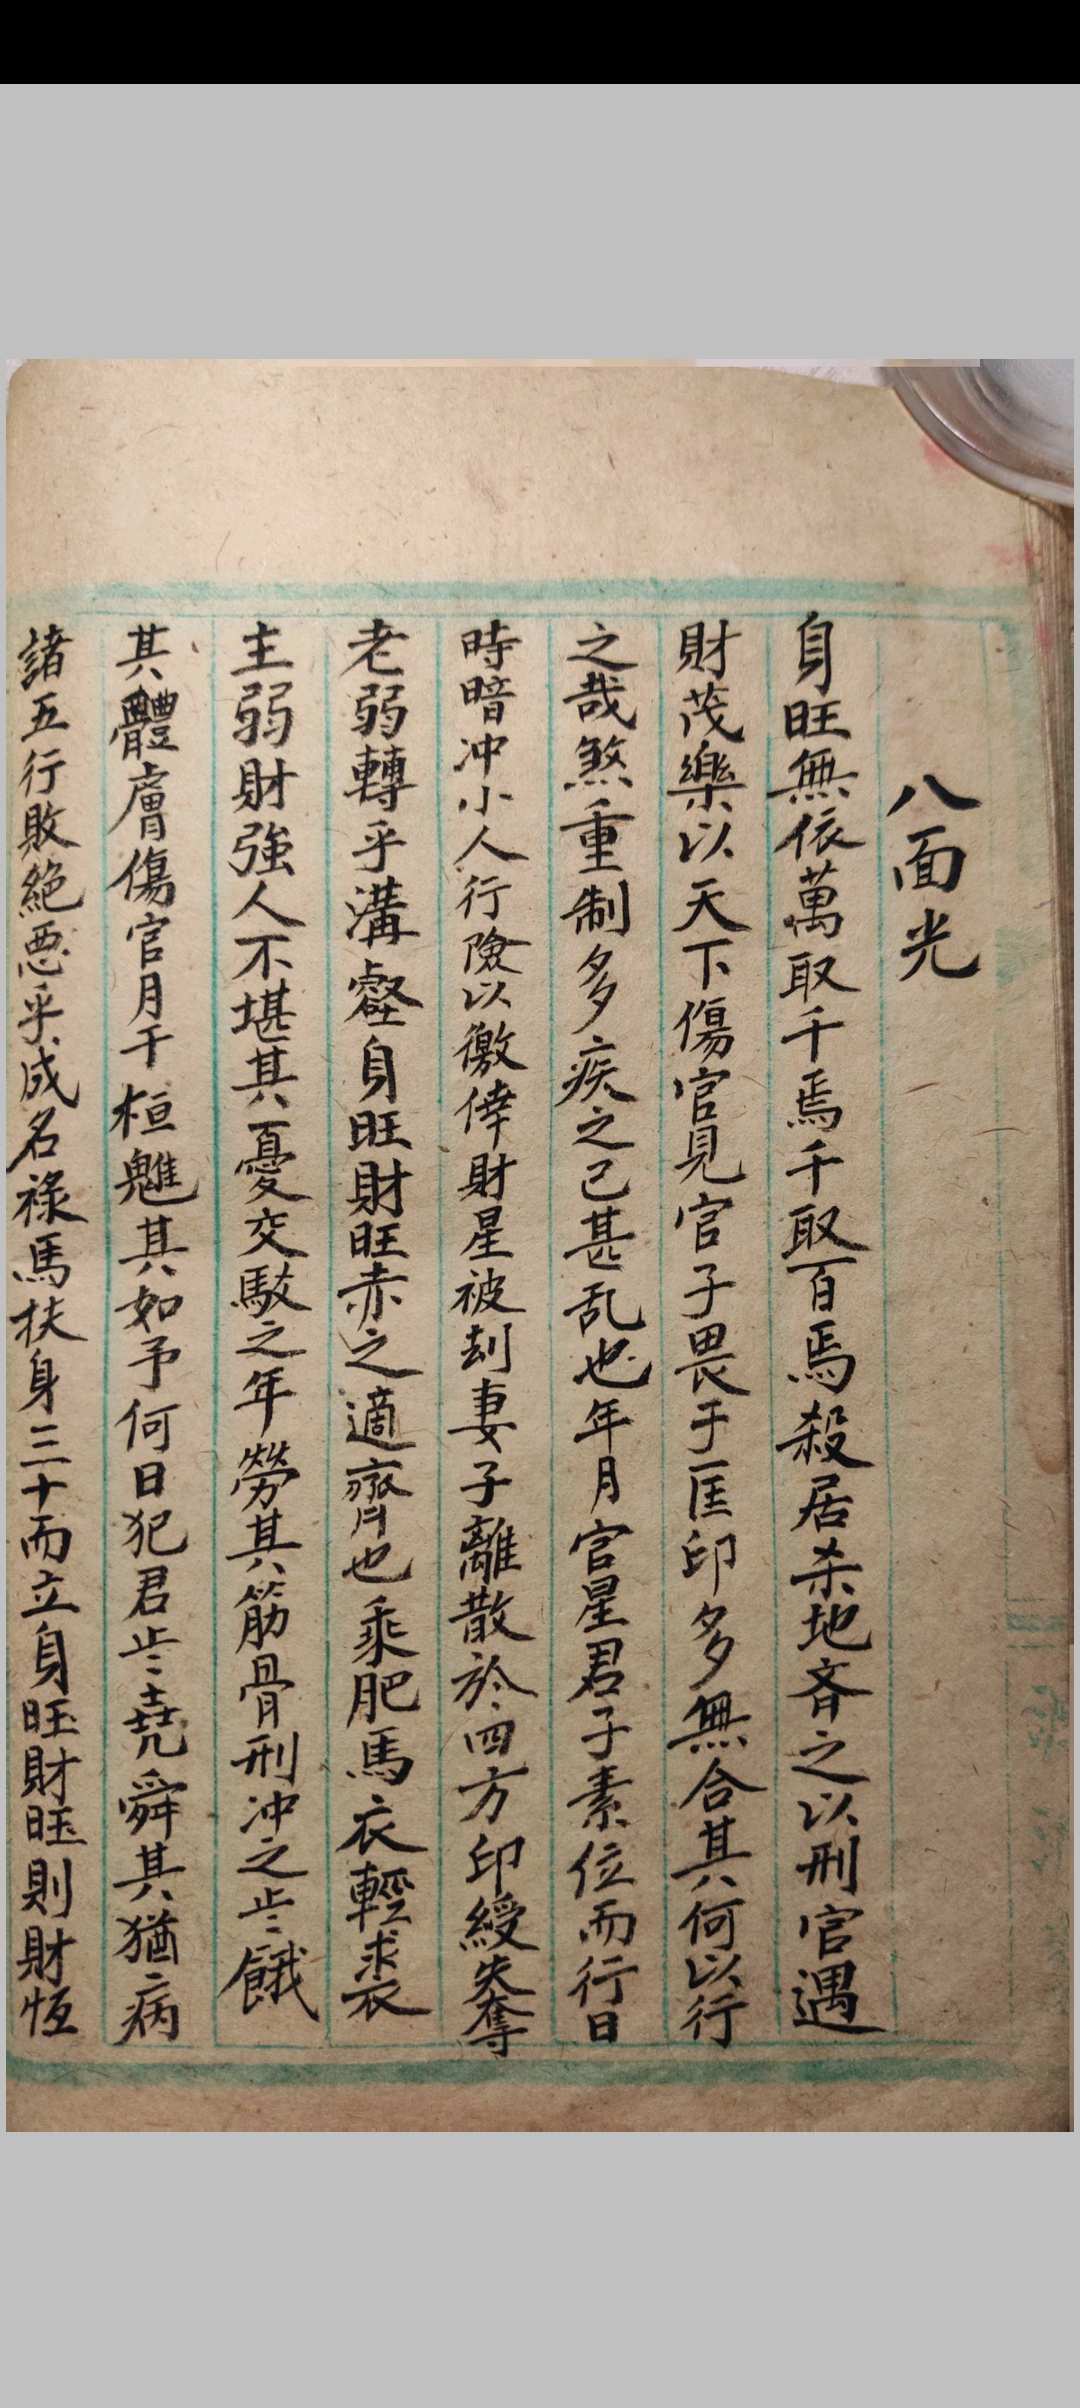 八面光
身旺無依萬取千焉千取百焉殺居杀地斉之以刑官遇
財茂樂以天下傷官見官子畏于匡印多無合其何以行
之哉煞重制多疾之已甚乱也年月官星君子素位而行日
時暗冲小人行險以徼倖財星被刦妻子離散於四方印綬失奪
老弱轉乎溝壑身旺財旺赤之適齊也乘肥馬衣輕裘
主弱財強人不堪其憂交馭之年勞其筋骨刑冲之歲餓
其體膚傷官月干桓魋其如予何日犯君歲堯舜其猶病
諸五行敗絕惡乎成名祿馬扶身三十而立身旺財旺則財恆